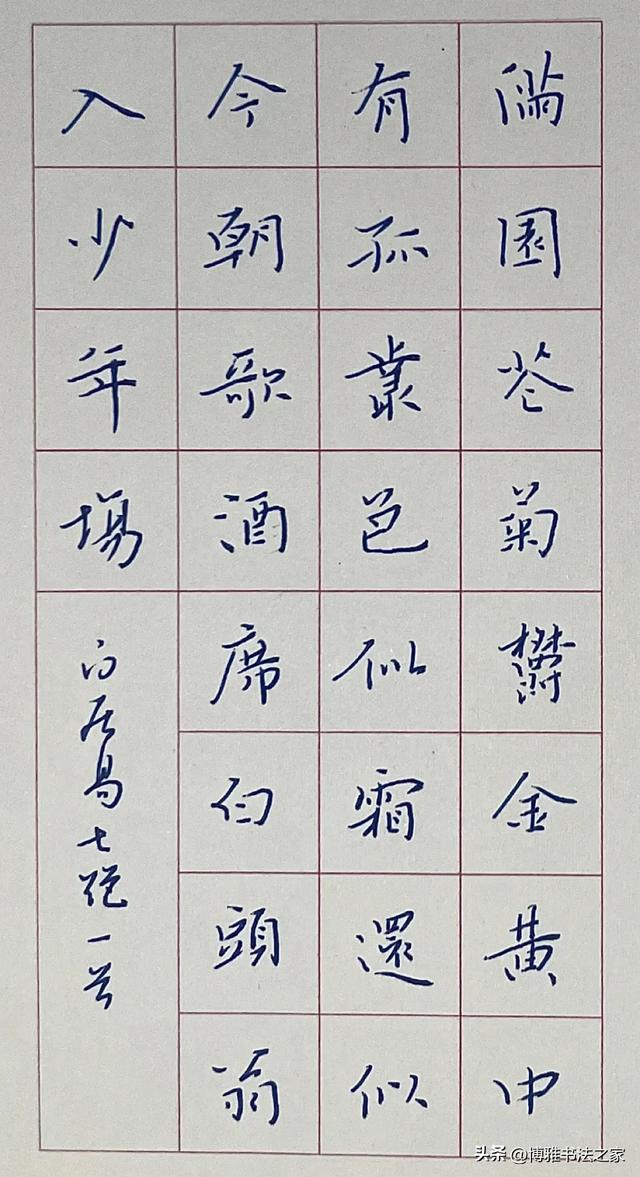 满園花菊欝金黄中
有孤叢色似霜還似
今朝歌酒席白頭翁
入少年場
白居易七絕一首
头条 @博雅书法之家